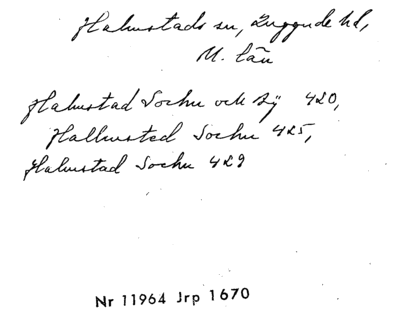 Halmstads sn, Luggude hd,
M. län
Halmstad Sochn och By 420,
Hallmsted Sochn 425,
Halmstad Sochn 429
Nr 11964 Jrp 1670